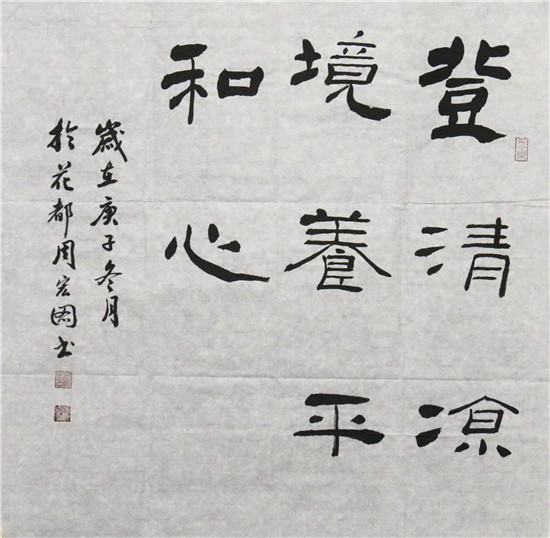 登清凉
境養平
和心
歲在庚子冬月
於花都周宏图书